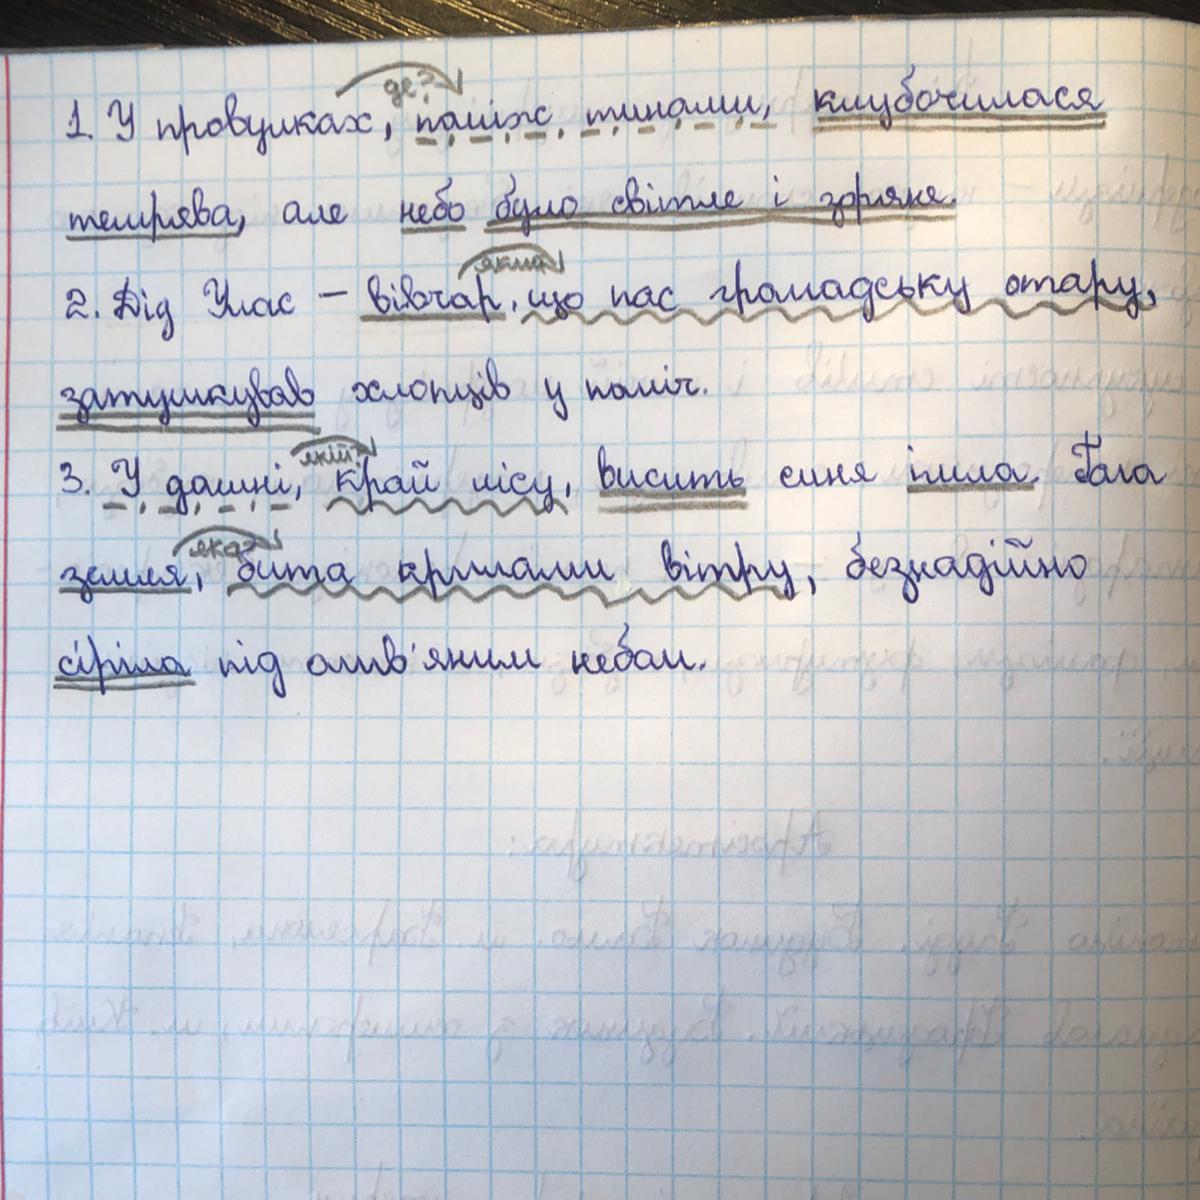 де?
1. У провулках, поміж тинами, клубочилася
темрява, але небо було світле і зоряне.
який
2. Дід Улас – вівчар, що пас громадську отару,
затушкував хлопців у поміч.
якій?
3. У долині, край лісу, висить синя імла. Гола
яка?
земля, бита крилами вітру, безнадійно
сіріла під олив'яним небом.